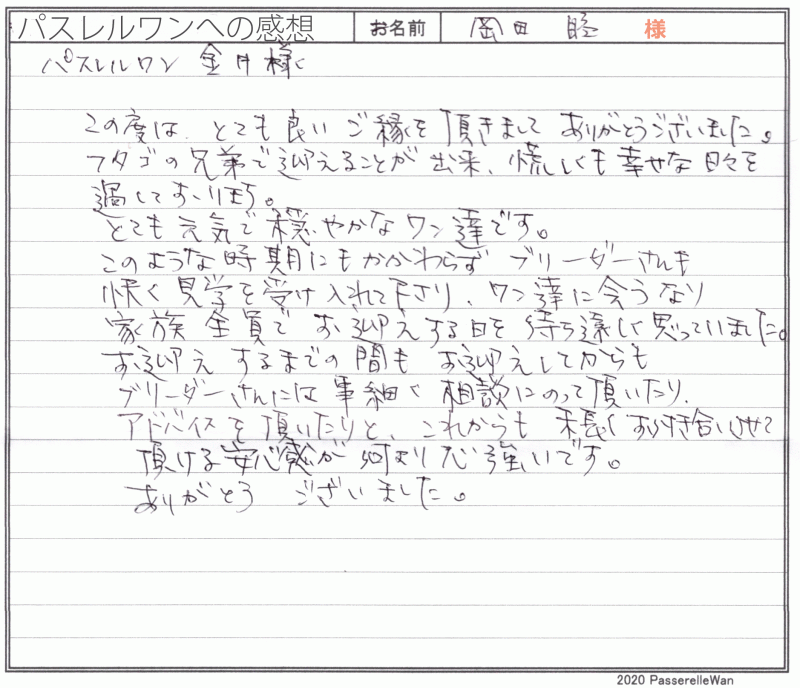 パスレルワンへの感想 お名前 岡田 睦 様
パスレルワン 金井様へ
この度は、とても良いご縁を頂きましてありがとうございました。
フタゴの兄弟で迎えることが出来、慌しくも幸せな日々を
過しております。
とても元気で穏やかなワン達です。
このような時期にもかかわらず ブリーダーさんも
快く見学を受け入れて下さり、ワン達に会うなり
家族全員で お迎えする日を待ち遠しく思っていました。
お迎えするまでの間も お迎えしてからも
ブリーダーさんには事細く相談にのって頂いたり、
アドバイスを頂いたりと、これからも末長くお付き合いさせて
頂ける安心感が何より心強いです。
ありがとう ございました。
2020 PasserelleWan